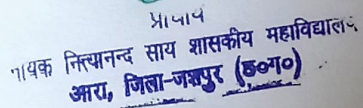 प्राचार्य
नायक नित्यानन्द साय शासकीय महाविद्यालय
आरा, जिला-जशपुर (छ०ग०)